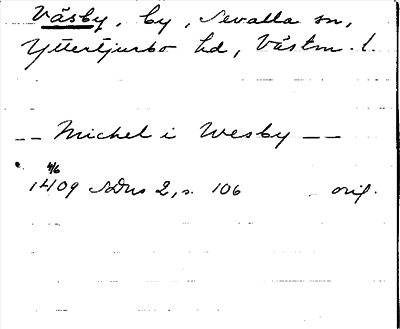 Väsby, by, Sevalla sn,
Yttertjurbo hd, Västm. l.
-- Michel i Wesby --
4/6
1409 SDns 2, s. 106 orig.